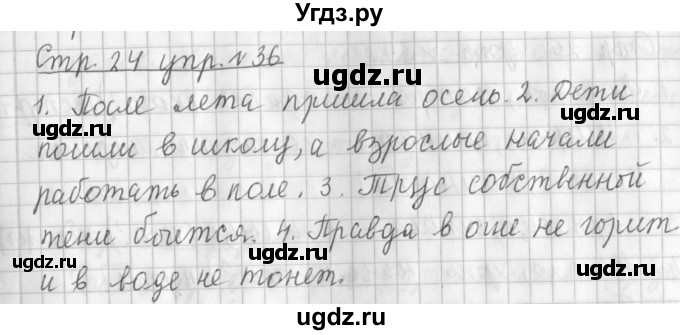 Угдз.ру
Стр. 24 упр. №36
ugdz.ru ugdz.ru
1. После лета пришла осень. 2. Дети
пошли в школу, а взрослые начали
ugdz.ru
работать в поле. 3. Трус собственной
тени боится. 4. Правда в огне не горит
ugdz.ru ugdz.ru
и в воде не тонет.
ugdz.ru
ugdz.ru